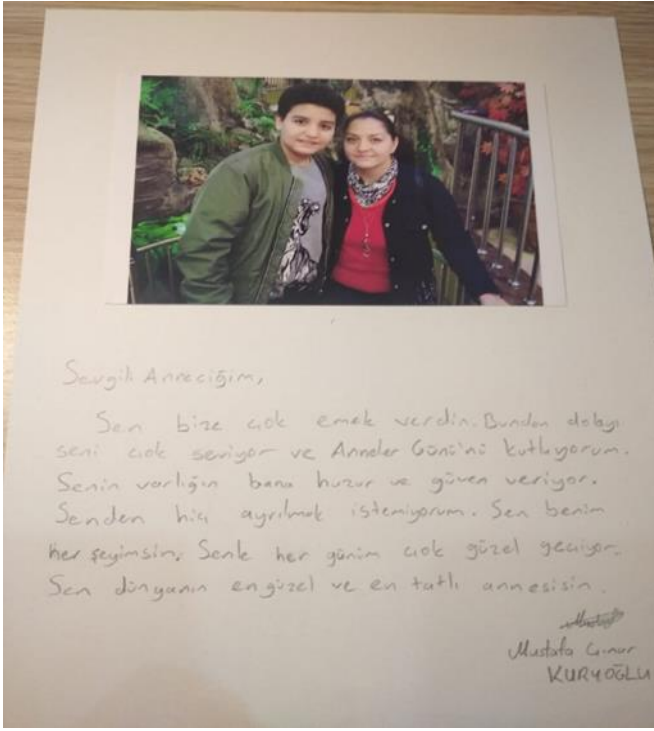 Sevgili Anneciğim,
Sen bize çok emek verdin. Bundan dolayı
seni çok seviyor ve Anneler Günü'nü kutluyorum.
Senin varlığın bana huzur ve güven veriyor.
Senden hiç ayrılmak istemiyorum. Sen benim
her şeyimsin. Senle her günim çok güzel geçiyor.
Sen dünyanın en güzel ve en tatlı annesisin.
Mustafa
KURYOĞLU